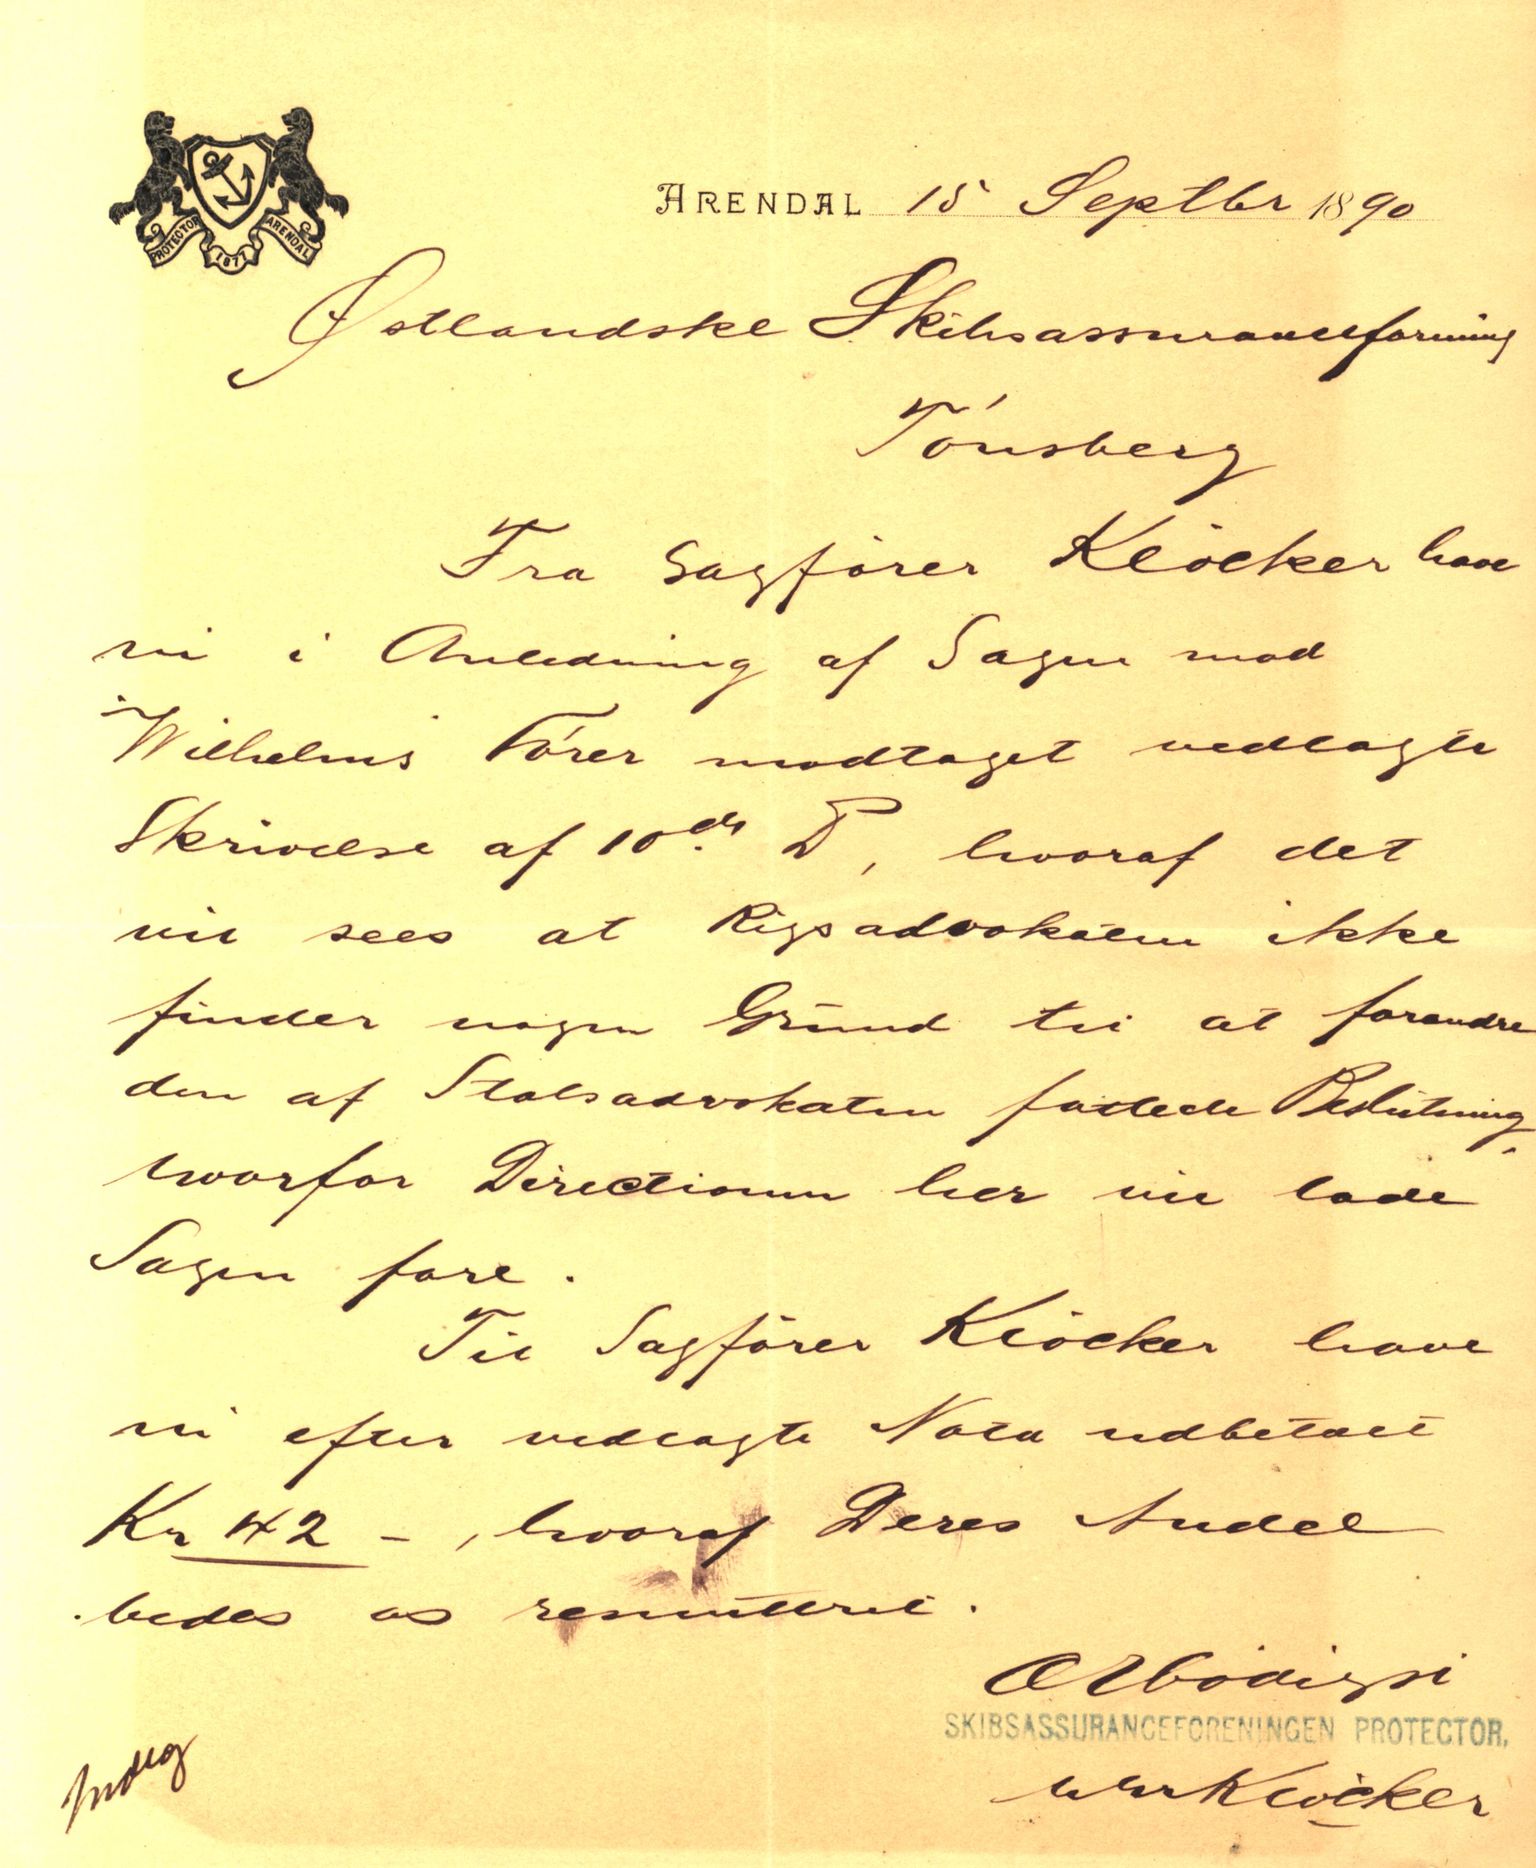 PROTECTOR 1877 ARENDAL
ARENDAL 15 Septbr 1890
Østlandske Skibsassuranceforening
Tönsberg
Fra Sagförer Klöcker have
vi i Anledning af Sagen mod
"Wilhelms" Förer modtaget vedlagte
Skrivelse af 10de. D, hvoraf det
vil sees at Rigsadvokaten ikke
finder nogen Grund til at forandre
den af Statsadvokaten fattede Beslutning,
hvorfor Directionen her vil lade
Sagen fare.
Til Sagförer Klöcker have
vi efter vedlagte Nota udbetalt
Kr 42 -, hvoraf Deres Andel
bedes os remitteret.
Ærbödigst
SKIBSASSURANCEFORENINGEN PROTECTOR.
Klöcker
Indlg